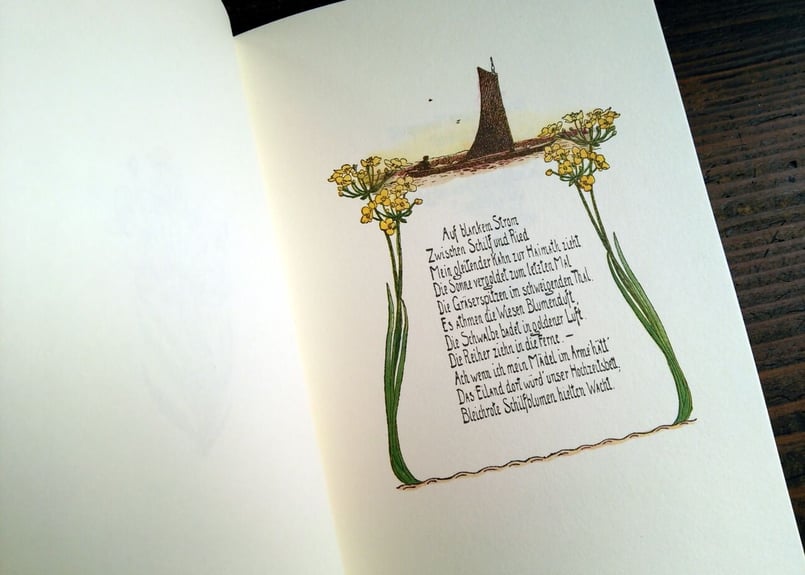 Auf blankem Strom
Zwischen Schilf und Ried
Mein gleitender Kahn zur Haimath zieht
Die Sonne vergoldet zum letzten Mal
Die Gräserspitzen im schweigenden Thal.
Es athmen die Wiesen Blumenduft,
Die Schwalbe badet in goldener Luft
Die Reiher ziehn in die Ferne. —
Ach wenn ich mein Mädel im Arme hätt'
Das Eiland dort würd' unser Hochzeitsbett,
Bleichrote Schilfblumen hielten Wacht.